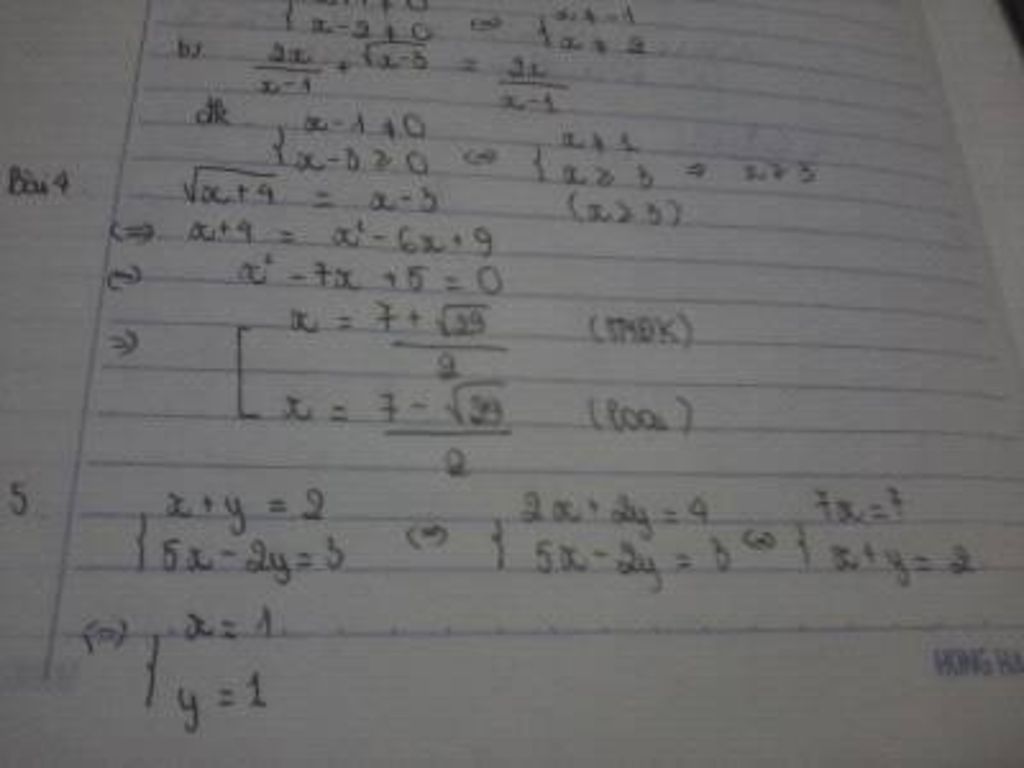 { x-2≠0 ⇔ { x≠-1 x≠2
b, 2x/(x-1) + √(x-3) = 2x/(x-1)
đk { x-1≠0 x-3≥0 ⇔ { x≠1 x≥3 ⇒ x≥3
Bài 4 √(x+4) = x-3 (x≥3)
⇔ x+4 = x²-6x+9
⇔ x²-7x+5=0
⇒ [ x = (7+√29)/2 (TMĐK)
x = (7-√29)/2 (loại)
5 { x+y=2 5x-2y=3 ⇔ { 2x+2y=4 5x-2y=3 ⇔ { 7x=7 x+y=2
⇔ { x=1 y=1
HONG HA